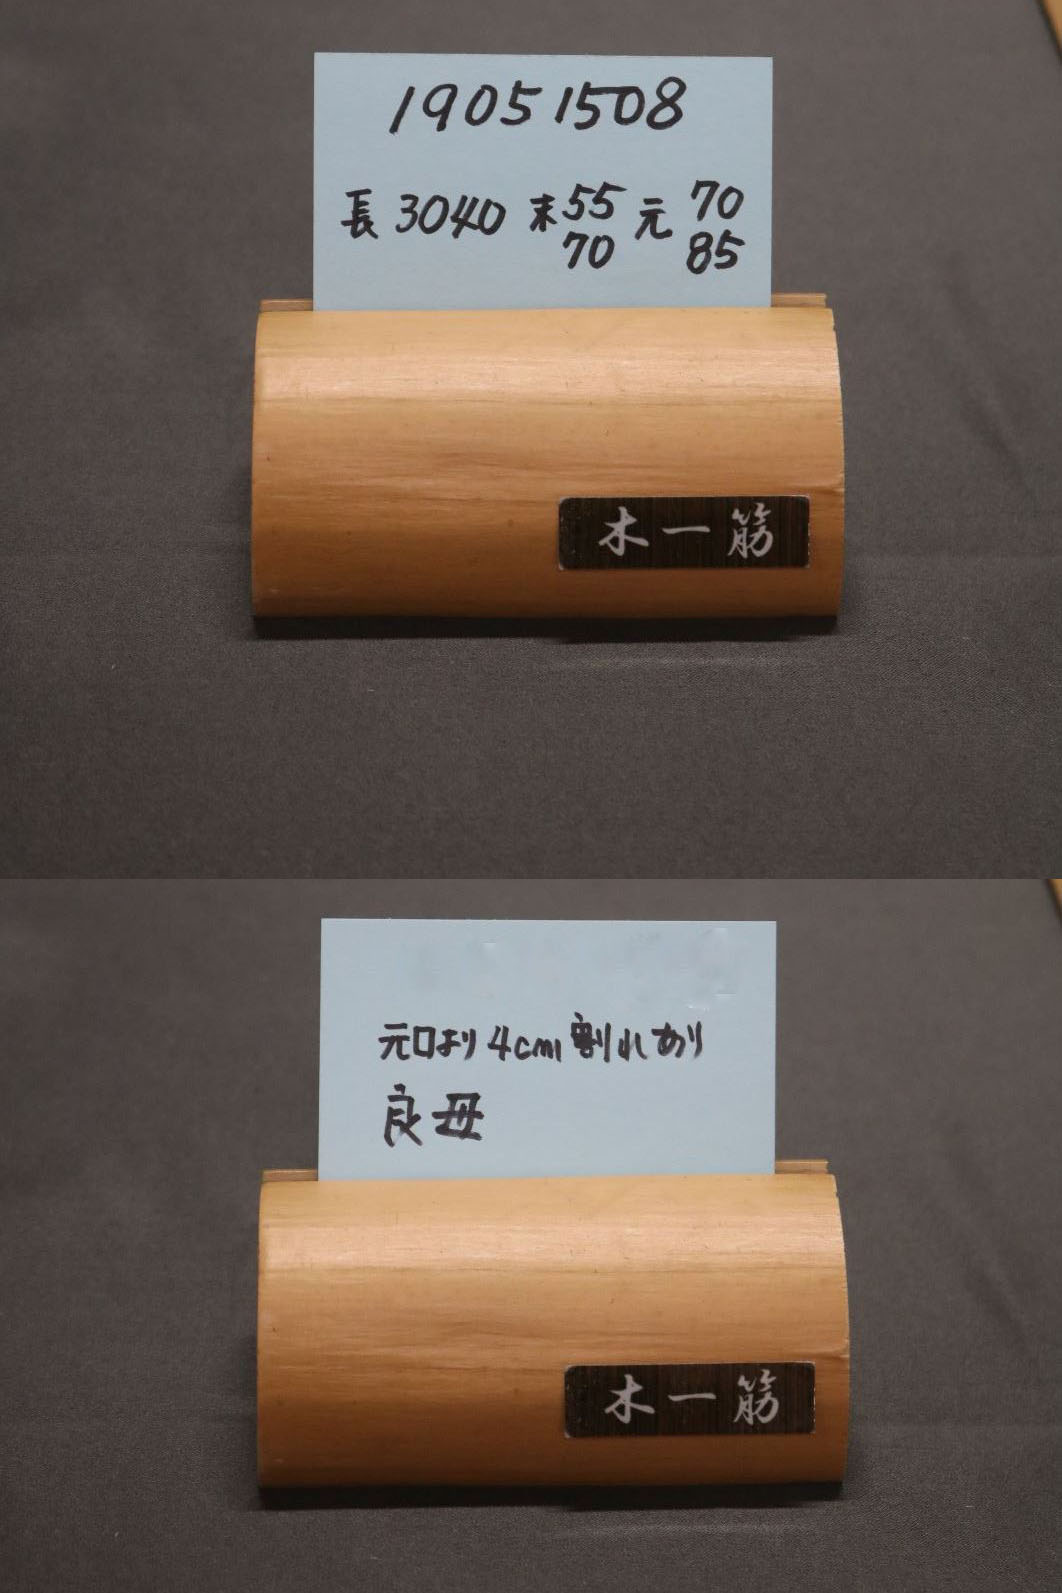 19051508
長3040 末55 元70
70 85
木一筋
元口より4cm割れあり
良母
木一筋